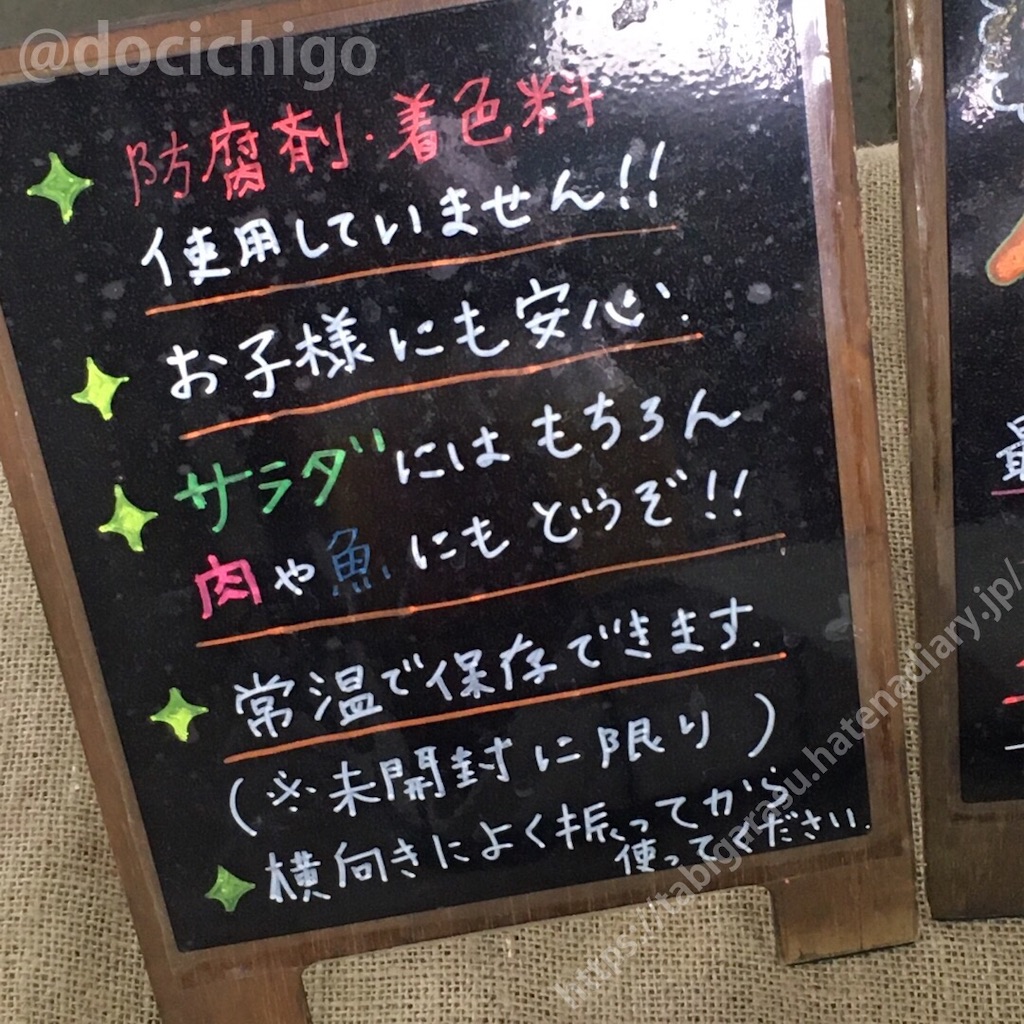 @docichigo
防腐剤・着色料
使用していません!!
お子様にも安心.
サラダにはもちろん
肉や魚にもどうぞ!!
常温で保存できます.
(※未開封に限り)
横向きによく振ってから
使ってください.
最
https://tabigarasu.hatenadiary.jp/